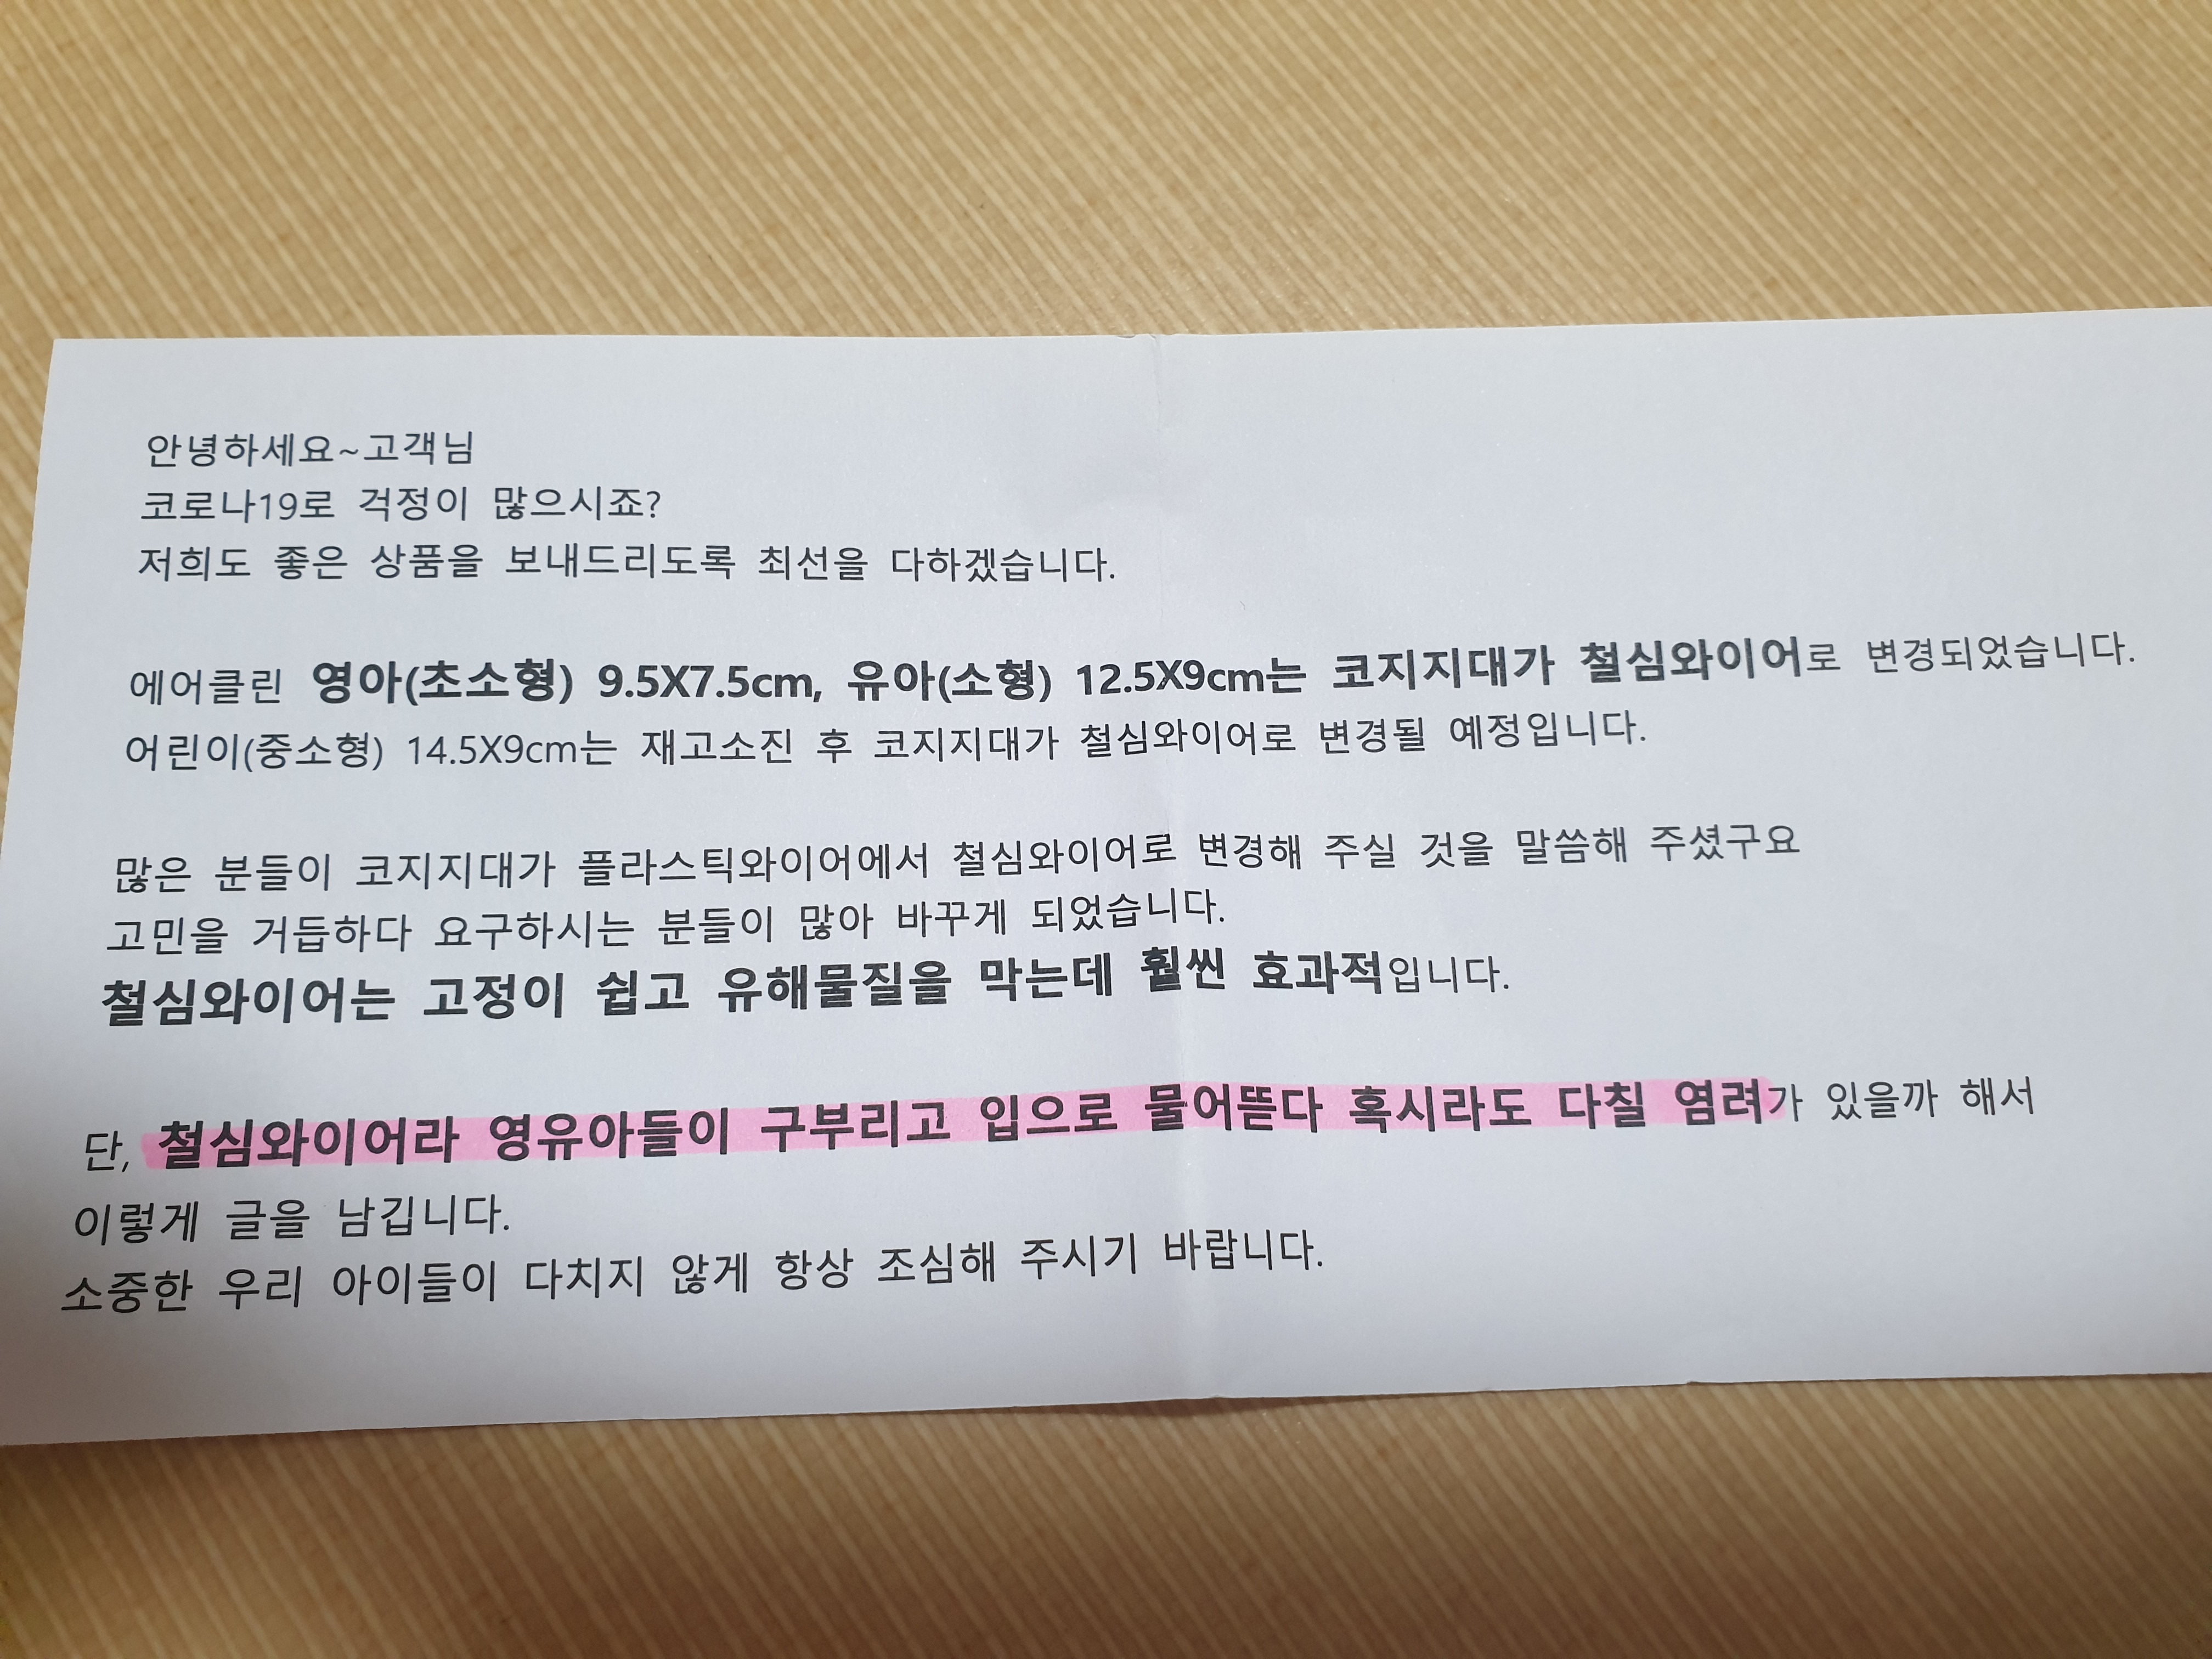 안녕하세요~고객님
코로나19로 걱정이 많으시죠?
저희도 좋은 상품을 보내드리도록 최선을 다하겠습니다.
에어클린 영아(초소형) 9.5X7.5cm, 유아(소형) 12.5X9cm는 코지지대가 철심와이어로 변경되었습니다.
어린이(중소형) 14.5X9cm는 재고소진 후 코지지대가 철심와이어로 변경될 예정입니다.
많은 분들이 코지지대가 플라스틱와이어에서 철심와이어로 변경해 주실 것을 말씀해 주셨구요
고민을 거듭하다 요구하시는 분들이 많아 바꾸게 되었습니다.
철심와이어는 고정이 쉽고 유해물질을 막는데 훨씬 효과적입니다.
단, 철심와이어라 영유아들이 구부리고 입으로 물어뜯다 혹시라도 다칠 염려가 있을까 해서
이렇게 글을 남깁니다.
소중한 우리 아이들이 다치지 않게 항상 조심해 주시기 바랍니다.